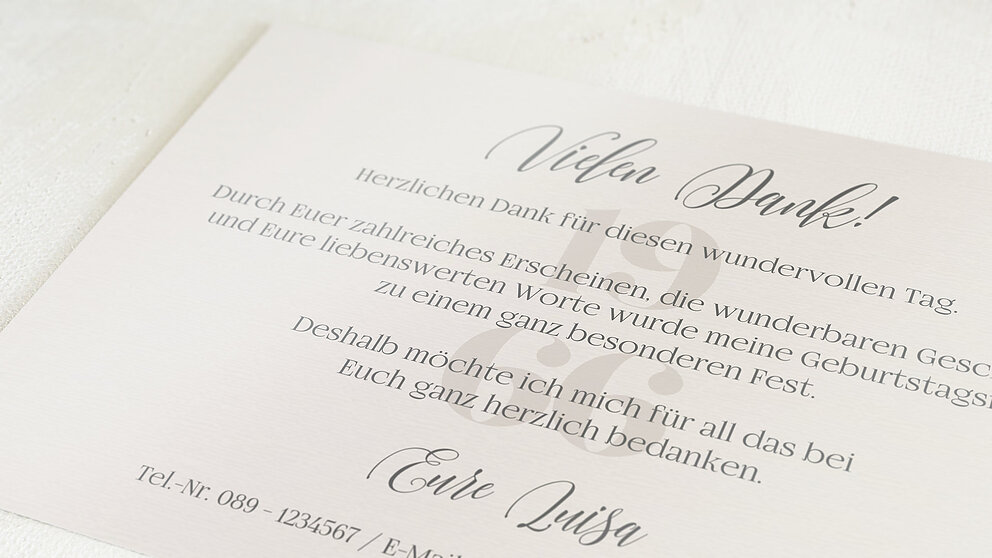 Vielen Dank!
Herzlichen Dank für diesen wundervollen Tag.
19
Durch Euer zahlreiches Erscheinen, die wunderbaren Gesc
und Eure liebenswerten Worte wurde meine Geburtstags
zu einem ganz besonderen Fest.
66
Deshalb möchte ich mich für all das bei
Euch ganz herzlich bedanken.
Eure Luisa
Tel.-Nr. 089 - 1234567 / E-Mail